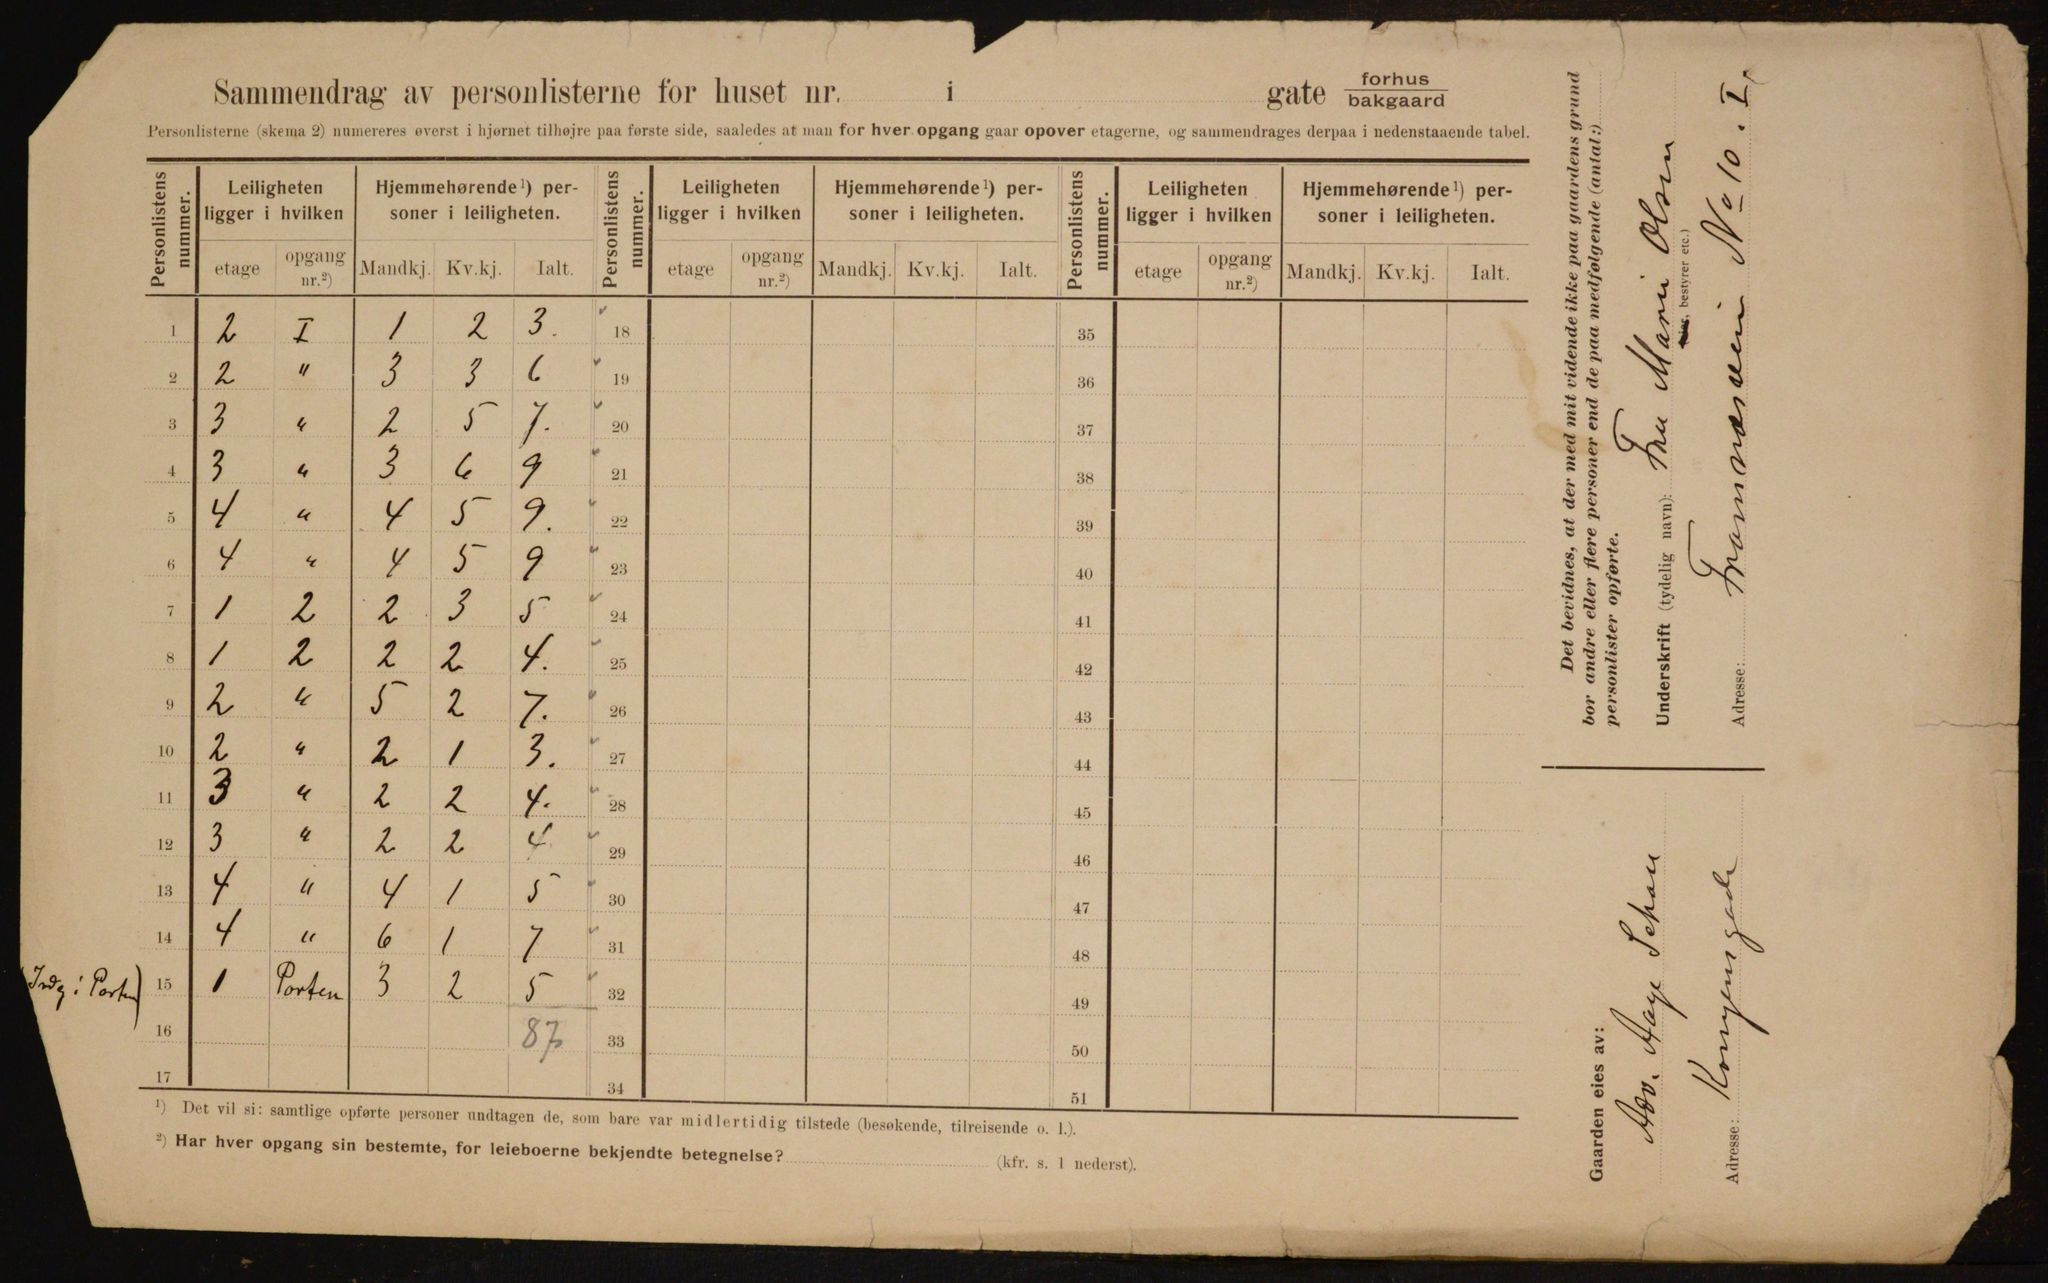 Sammendrag av personlisterne for huset nr. i gate forhus
bakgaard
Personlisterne (skema 2) numereres øverst i hjørnet tilhøjre paa første side, saaledes at man for hver opgang gaar opover etagerne, og sammendrages derpaa i nedenstaaende tabel.
Personlistens nummer. Leiligheten ligger i hvilken Hjemmehørende ¹) personer i leiligheten. Personlistens nummer. Leiligheten ligger i hvilken Hjemmehørende ¹) personer i leiligheten. Personlistens nummer. Leiligheten ligger i hvilken Hjemmehørende ¹) personer i leiligheten.
etage opgang nr.²) Mandkj. Kv.kj. Ialt. etage opgang nr.²) Mandkj. Kv.kj. Ialt. etage opgang nr.²) Mandkj. Kv.kj. Ialt.
1 2 I 1 2 3. 18 35
2 2 " 3 3 6 19 36
3 3 " 2 5 7. 20 37
4 3 " 3 6 9 21 38
5 4 " 4 5 9. 22 39
6 4 " 4 5 9 23 40
7 1 2 2 3 5 24 41
8 1 2 2 2 4. 25 42
9 2 " 5 2 7. 26 43
10 2 " 2 1 3. 27 44
11 3 " 2 2 4. 28 45
12 3 " 2 2 4 29 46
13 4 " 4 1 5 30 47
14 4 " 6 1 7 31 48
(Indg i Porten) 15 1 Porten 3 2 5 32 49
16 87 33 50
17 34 51
¹) Det vil si: samtlige opførte personer undtagen de, som bare var midlertidig tilstede (besøkende, tilreisende o. l.).
²) Har hver opgang sin bestemte, for leieboerne bekjendte betegnelse? (kfr. s. 1 nederst).
Det bevidnes, at der med mit vidende ikke paa gaardens grund
bor andre eller flere personer end de paa medfølgende (antal:)
personlister opførte.
Underskrift (tydelig navn): Fru Marie Olsen
bestyrer etc.)
Adresse: Frognerveien No 10. I
Gaarden eies av:
Adv. Aage Schou
Adresse: Kongensgade